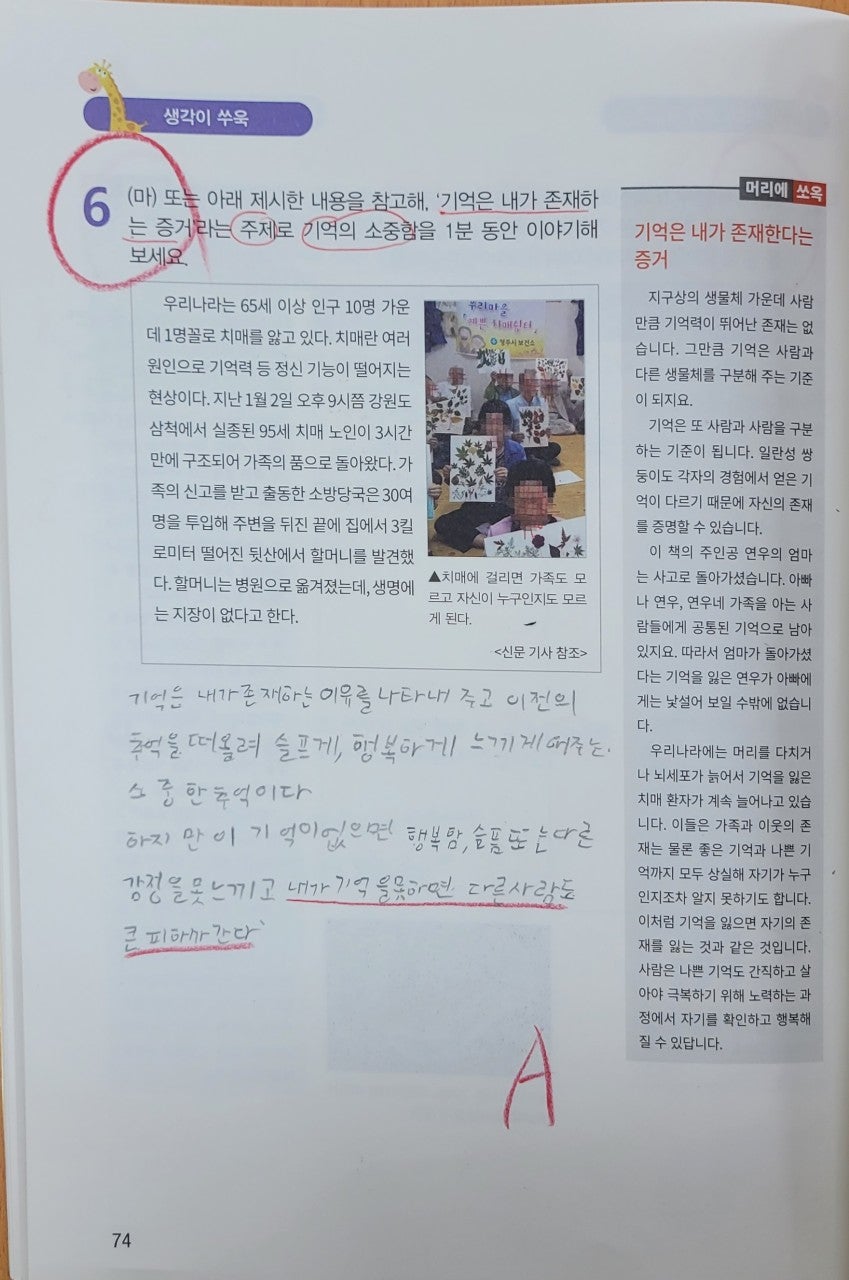 생각이 쑤욱
6 (마) 또는 아래 제시한 내용을 참고해, ‘기억은 내가 존재하
는 증거’라는 주제로 기억의 소중함을 1분 동안 이야기해
보세요.
우리나라는 65세 이상 인구 10명 가운
데 1명꼴로 치매를 앓고 있다. 치매란 여러
원인으로 기억력 등 정신 기능이 떨어지는
현상이다. 지난 1월 2일 오후 9시쯤 강원도
삼척에서 실종된 95세 치매 노인이 3시간
만에 구조되어 가족의 품으로 돌아왔다. 가
족의 신고를 받고 출동한 소방당국은 30여
명을 투입해 주변을 뒤진 끝에 집에서 3킬
로미터 떨어진 뒷산에서 할머니를 발견했
다. 할머니는 병원으로 옮겨졌는데, 생명에
는 지장이 없다고 한다.
우리마을
예쁜 치매쉼터
영주시 보건소
▲치매에 걸리면 가족도 모
르고 자신이 누구인지도 모르
게 된다.
<신문 기사 참조>
기억은 내가 존재하는 이유를 나타내 주고 이전의
추억을 떠올려 슬프게, 행복하게 느끼게 해주는
소중한 추억이다
하지만 이 기억이 없으면 행복함, 슬픔 또는 다른
감정을 못 느끼고 내가 기억을 못하면 다른사람도
큰 피해가 간다
A
머리에 쏘옥
기억은 내가 존재한다는
증거
지구상의 생물체 가운데 사람
만큼 기억력이 뛰어난 존재는 없
습니다. 그만큼 기억은 사람과
다른 생물체를 구분해 주는 기준
이 되지요.
기억은 또 사람과 사람을 구분
하는 기준이 됩니다. 일란성 쌍
둥이도 각자의 경험에서 얻은 기
억이 다르기 때문에 자신의 존재
를 증명할 수 있습니다.
이 책의 주인공 연우의 엄마
는 사고로 돌아가셨습니다. 아빠
나 연우, 연우네 가족을 아는 사
람들에게 공통된 기억으로 남아
있지요. 따라서 엄마가 돌아가셨
다는 기억을 잃은 연우가 아빠에
게는 낯설어 보일 수밖에 없습니
다.
우리나라에는 머리를 다치거
나 뇌세포가 늙어서 기억을 잃은
치매 환자가 계속 늘어나고 있습
니다. 이들은 가족과 이웃의 존
재는 물론 좋은 기억과 나쁜 기
억까지 모두 상실해 자기가 누구
인지조차 알지 못하기도 합니다.
이처럼 기억을 잃으면 자기의 존
재를 잃는 것과 같은 것입니다.
사람은 나쁜 기억도 간직하고 살
아야 극복하기 위해 노력하는 과
정에서 자기를 확인하고 행복해
질 수 있답니다.
74